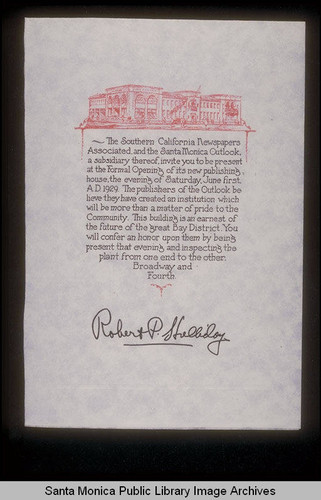 The Southern California Newspapers
Associated, and the Santa Monica Outlook,
a subsidiary thereof, invite you to be present
at the Formal Opening of its new publishing
house, the evening of Saturday, June first,
A.D. 1929. The publishers of the Outlook be
lieve they have created an institution which
will be more than a matter of pride to the
Community. This building is an earnest of
the future of the great Bay District. You
will confer an honor upon them by being
present that evening and inspecting the
plant from one end to the other.
Broadway and
Fourth.
Robert P. Holliday
Santa Monica Public Library Image Archives